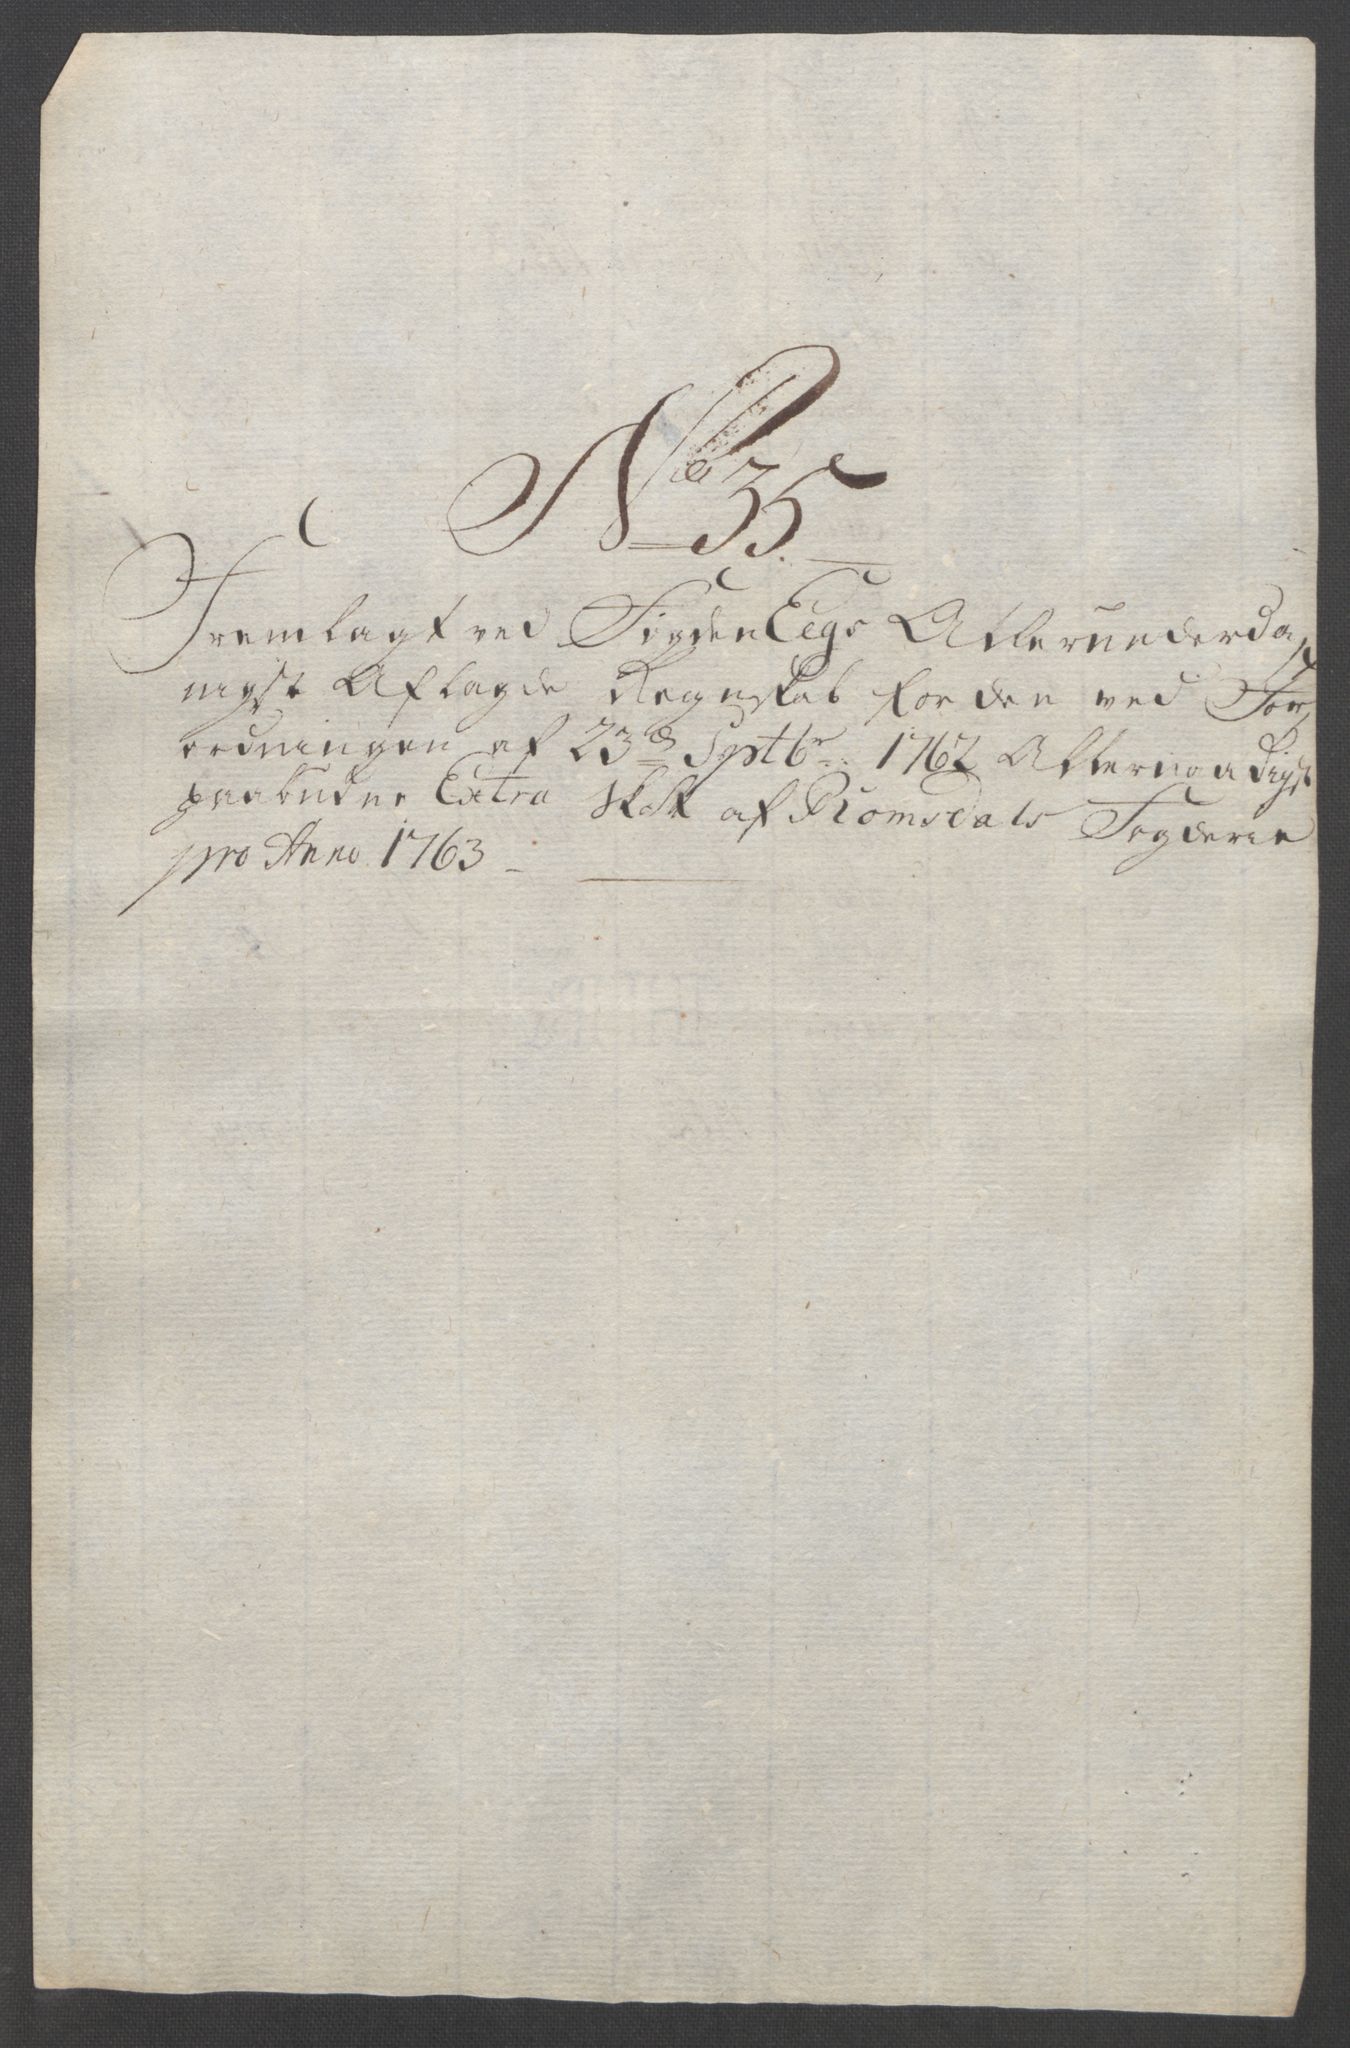 No 35.
Fremlagt ved Fogden Eegs Allerunderda,
nigst Aflagde Regnskab for den ved For,
ordningen af 23de Septbr: 1762 Allernaadigst
paabudne Extra Skatt af Romsdals Fogderie
pro Anno 1763 –